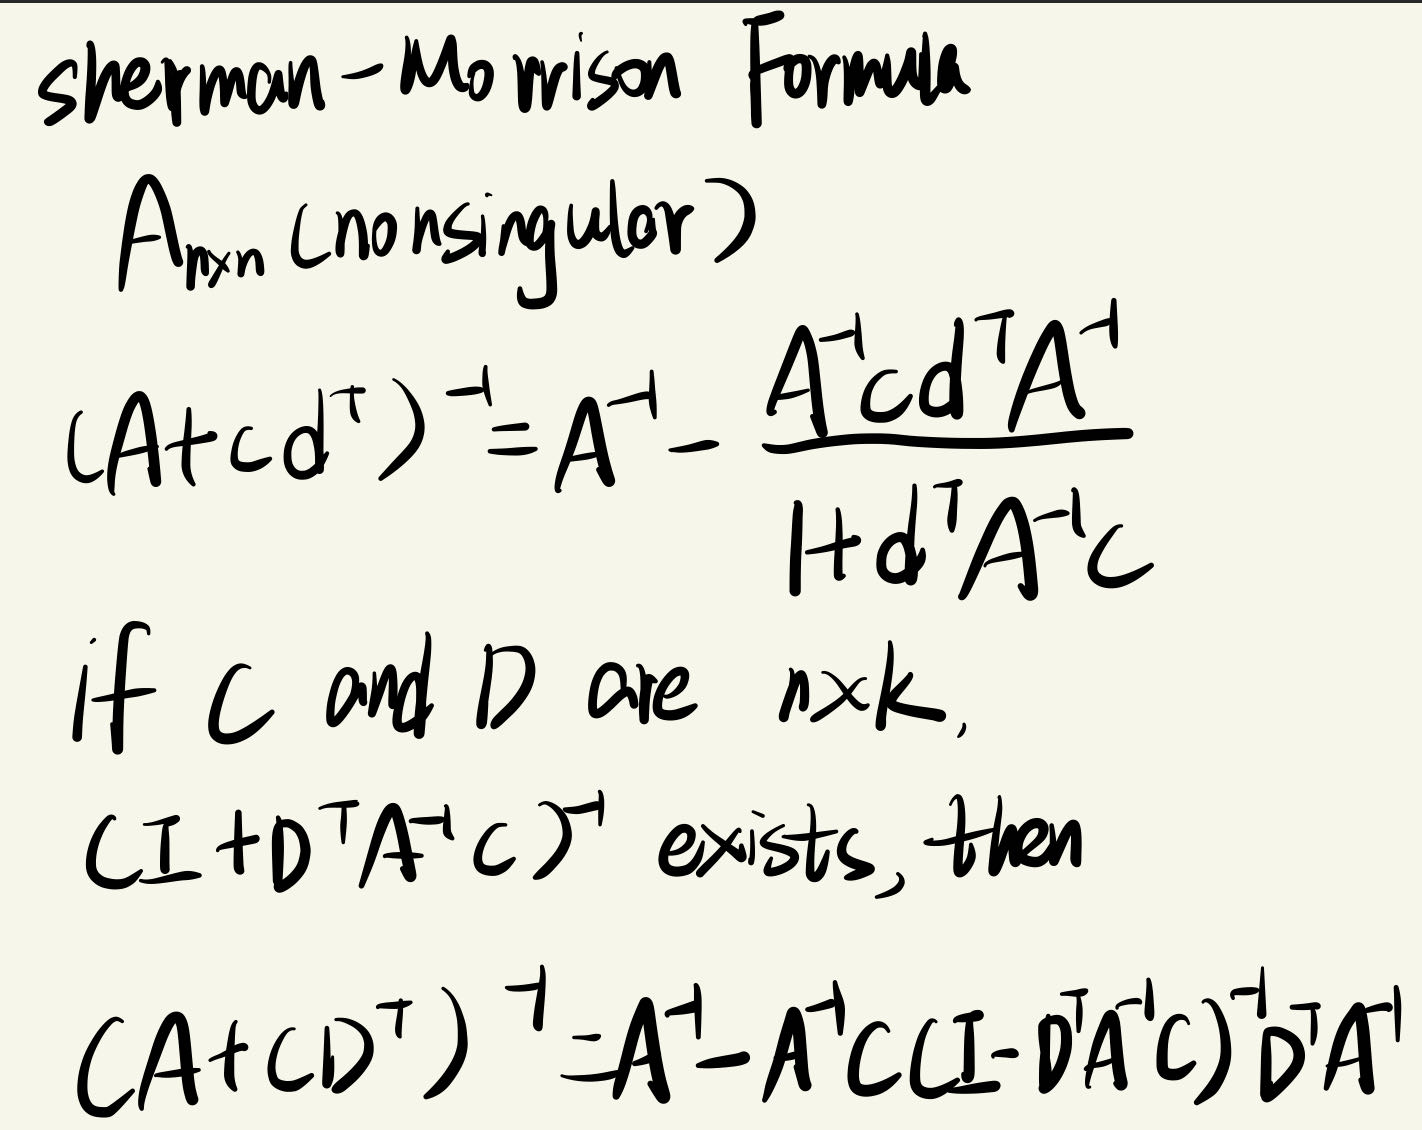 sherman-Morrison Formula
Aₙₓₙ (nonsingular)
(A+cdᵀ)⁻¹ = A⁻¹ - A⁻¹cdᵀA⁻¹ / 1+dᵀA⁻¹c
if C and D are n×k,
(I+DᵀA⁻¹C)⁻¹ exists, then
(A+CDᵀ)⁻¹ = A⁻¹-A⁻¹C(I-DᵀA⁻¹C)⁻¹DᵀA⁻¹